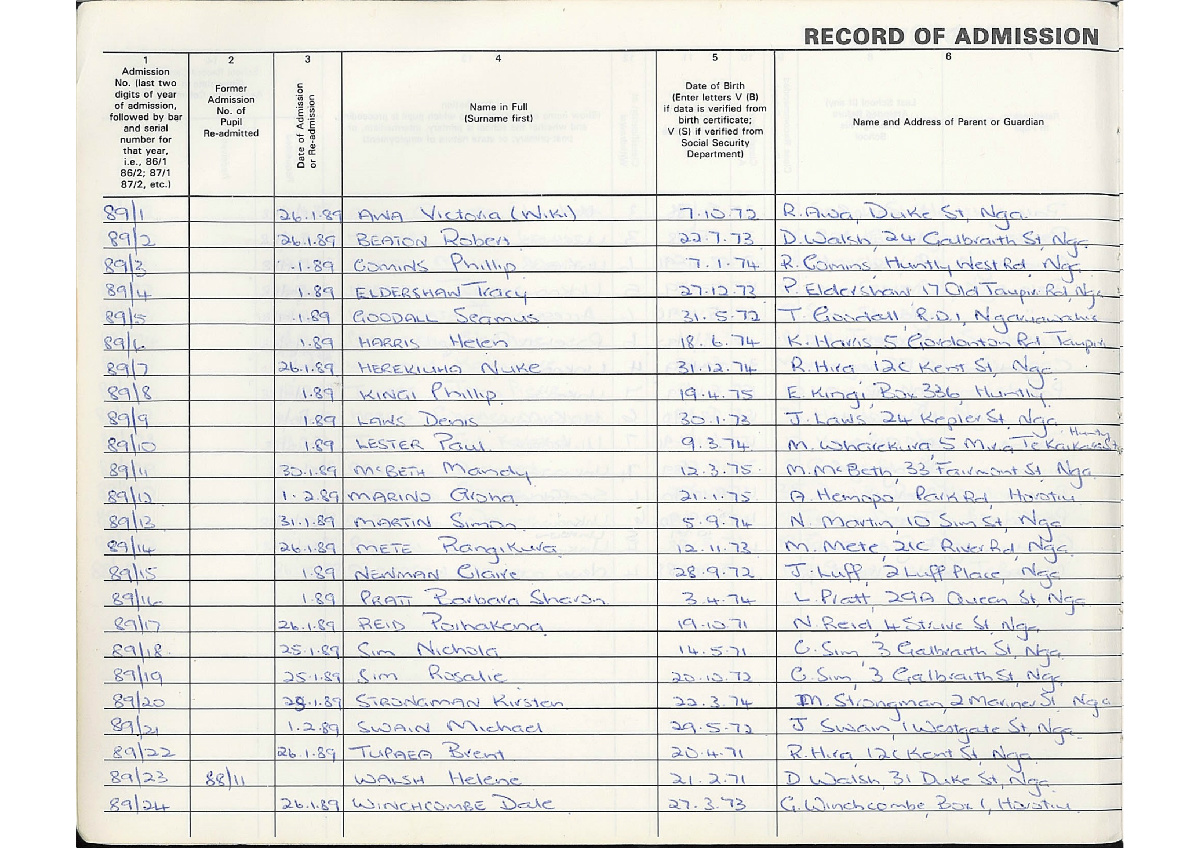 RECORD OF ADMISSION
1 2 3 4 5 6
Admission No. (last two digits of year of admission, followed by bar and serial number for that year, i.e., 86/1 86/2; 87/1 87/2, etc.)
Former Admission No. of Pupil Re-admitted
Date of Admission or Re-admission
Name in Full (Surname first)
Date of Birth (Enter letters V (B) if data is verified from birth certificate; V (S) if verified from Social Security Department)
Name and Address of Parent or Guardian
89/1 26.1.89 AWA Victoria (Wiki) 7.10.72 R. Awa, Duke St, Nga.
89/2 26.1.89 BEATON Robert 22.7.73 D. Walsh, 24 Galbraith St, Nga.
89/3 .1.89 COMINS Phillip 7.1.74 R. Comins, Huntly West Rd, Nga.
89/4 1.89 ELDERSHAW Tracy 27.12.73 P. Eldershaw 17 Old Taupiri Rd, Nga
89/5 .1.89 GOODALL Seamus 31.5.72 T. Goodall, R.D.1, Ngaruawahia
89/6 1.89 HARRIS Helen 18.6.74 K. Harris, 5 Gordonton Rd, Taupiri
89/7 26.1.89 HEREKIUHA Nuke 31.12.74 R. Hira, 12C Kent St, Nga.
89/8 1.89 KINGI Phillip 19.4.75 E. Kingi, Box 336, Huntly
89/9 .1.89 LAWS Denis 30.1.73 J. Laws, 24 Kepler St, Nga.
89/10 1.89 LESTER Paul 9.3.74 M. Wharekura, 5 Huntly
89/11 30.1.89 McBETH Mandy 12.3.75 M. McBeth, 33 Fairmont St, Nga.
89/12 1.2.89 MARINO Aroha 21.1.75 A. Hemopo, Park Rd, Horotiu
89/13 31.1.89 MARTIN Simon 5.9.74 N. Martin, 10 Sim St, Nga
89/14 26.1.89 METE Rangikura 12.11.73 M. Mete, 21C River Rd, Nga.
89/15 1.89 NEWMAN Claire 28.9.72 J. Luff, 2 Luff Place, Nga.
89/16 1.89 PRATT Barbara Sharon 3.4.74 L. Pratt, 29A Queen St, Nga.
89/17 26.1.89 REID Paihakena 19.10.71 N. Reid, 4 St, Nga.
89/18 25.1.89 Sim Nichola 14.5.71 C. Sim, 3 Galbraith St, Nga.
89/19 25.1.89 Sim Rosalie 20.10.72 C. Sim, 3 Galbraith St, Nga.
89/20 .1.89 STRONGMAN Kirsten 22.3.74 M. Strongman, 2 Mariner St, Nga
89/21 1.2.89 SWAIN Michael 29.5.72 J Swain, 1 Westgate St, Nga.
89/22 26.1.89 TUPAEA Brent 20.4.71 R. Hira, 12C Kent St, Nga.
89/23 88/11 WALSH Helene 21.2.71 D Walsh 31 Duke St, Nga.
89/24 26.1.89 WINCHCOMBE Dale 27.3.73 G. Winchcombe, Box 1, Horotiu.